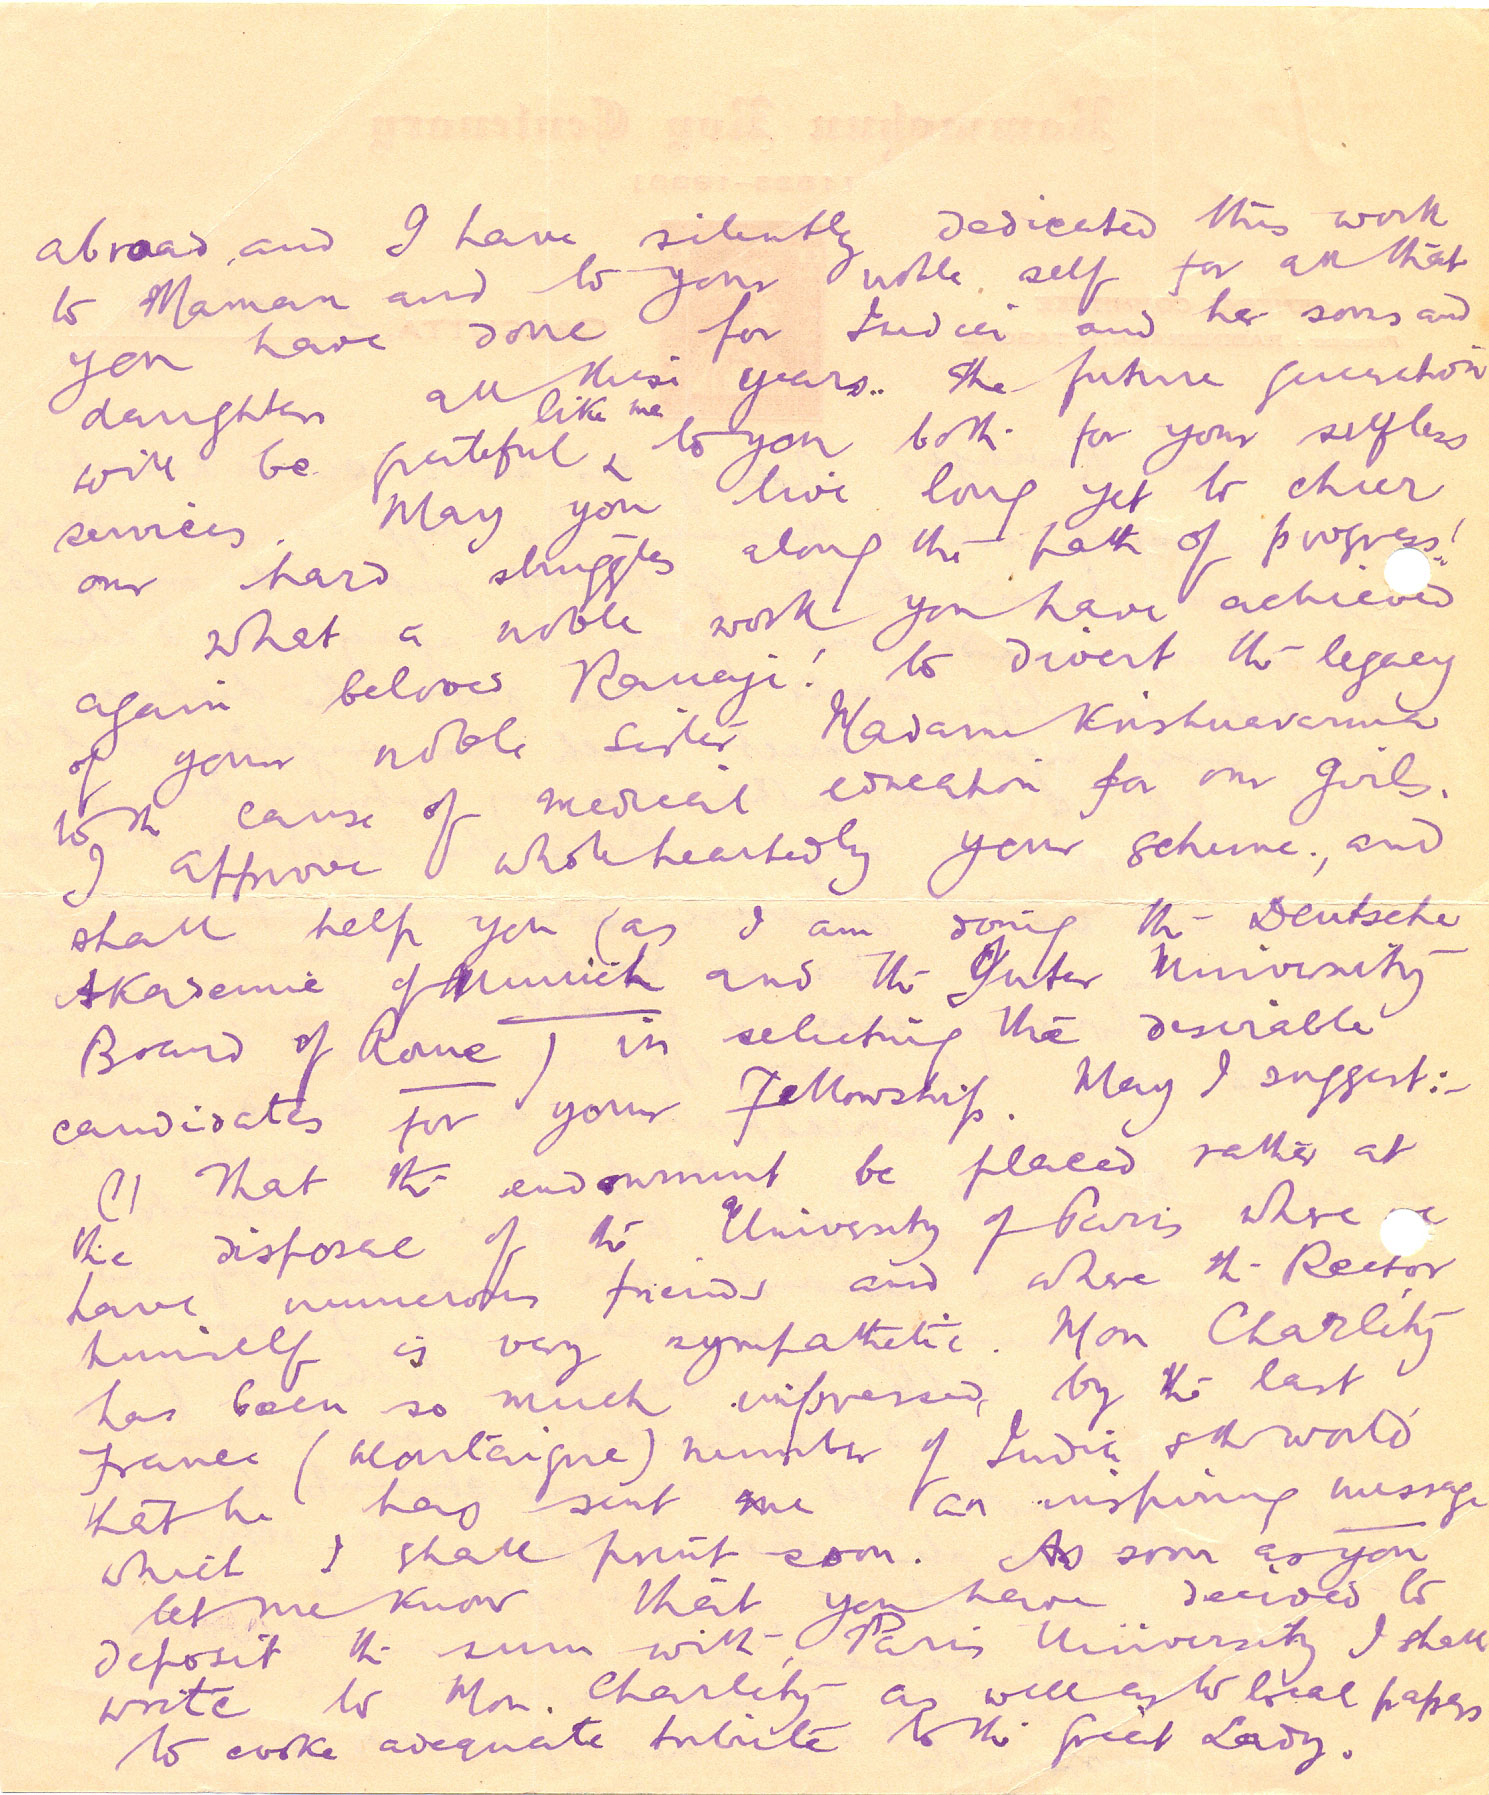 abroad, and I have silently dedicated this work
to Maman and to your noble self for all that
you have done for India and her sons and
daughters all these years.. The future generation
like me
will be grateful to you both for your selfless
services. May you live long yet to cheer
our hard struggles along the path of progress!
What a noble work you have achieved
again beloved Ranaji! to divert the legacy
of your noble sister Madame Krishnavarma
to the cause of medical education for our girls.
I approve wholeheartedly your scheme, and
shall help you (as I am doing the Deutsche
Akademie of Munich and the Inter University
Board of Rome) in selecting the desirable
candidates for your Fellowship. May I suggest:-
(1) That the endowment be placed rather at
the disposal of the University of Paris where we
have numerous friends and where the Rector
himself is very sympathetic. Mon Charléty
has been so much impressed, by the last
France (Montaigne) number of India & the world
that he has sent me an inspiring message
which I shall print soon. As soon as you
let me know that you have decided to
deposit the sum with Paris University I shall
write to Mon. Charléty as well as to local papers
to evoke adequate tribute to the great Lady.